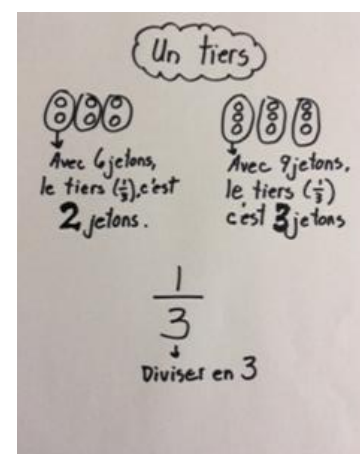 Un tiers
Avec 6 jetons,
le tiers (1/3), c'est
2 jetons.
Avec 9 jetons,
le tiers (1/3)
c'est 3 jetons
1
3
Diviser en 3